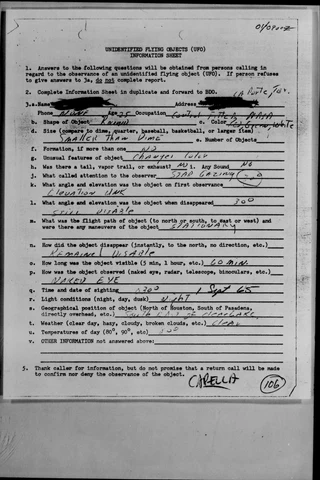 UNIDENTIFIED FLYING OBJECTS (UFO)
INFORMATION SHEET
1. Answers to the following questions will be obtained from persons calling in
regard to the observance of an unidentified flying object (UFO). If person refuses
to give answers to 3a, do not complete report.
2. Complete Information Sheet in duplicate and forward to BDO.
La Porte, Tex.
3.a. Name Address
Phone NONE Age 25 Occupation NASA
b. Shape of Object Round c. Color White
d. Size (compare to dime, quarter, baseball, basketball, or larger item)
SMALLER THAN DIME e. Number of Objects
f. Formation, if more than one NO
g. Unusual features of object Changes Color
h. Was there a tail, vapor trail, or exhaust NO i. Any Sound NO
j. What called attention to the observer STAR GAZING
k. What angle and elevation was the object on first observance
ELEVATION UNK
l. What angle and elevation was the object when disappeared 300
STILL VISABLE
m. What was the flight path of the object (to north or south, to east or west) and
were there any maneuvers of the object STATIONARY
n. How did the object disappear (instantly, to the north, no direction, etc.)
REMAINED VISABLE
o. How long was the object visible (5 min, 1 hour, etc.) 60 MIN.
p. How was the object observed (naked eye, radar, telescope, binoculars, etc.)
NAKED EYE
q. Time and date of sighting 0200 1 Sept 65
r. Light conditions (night, day, dusk) Night
s. Geographical position of object (North of Houston, South of Pasadena,
directly overhead, etc.) South East of Clear Lake
t. Weather (clear day, hazy, cloudy, broken clouds, etc.) Clear
u. Temperatures of day (80°, 90°, etc)
v. OTHER INFORMATION not answered above:
5. Thank caller for information, but do not promise that a return call will be made
to confirm nor deny the observance of the object.
CAPELLA
106